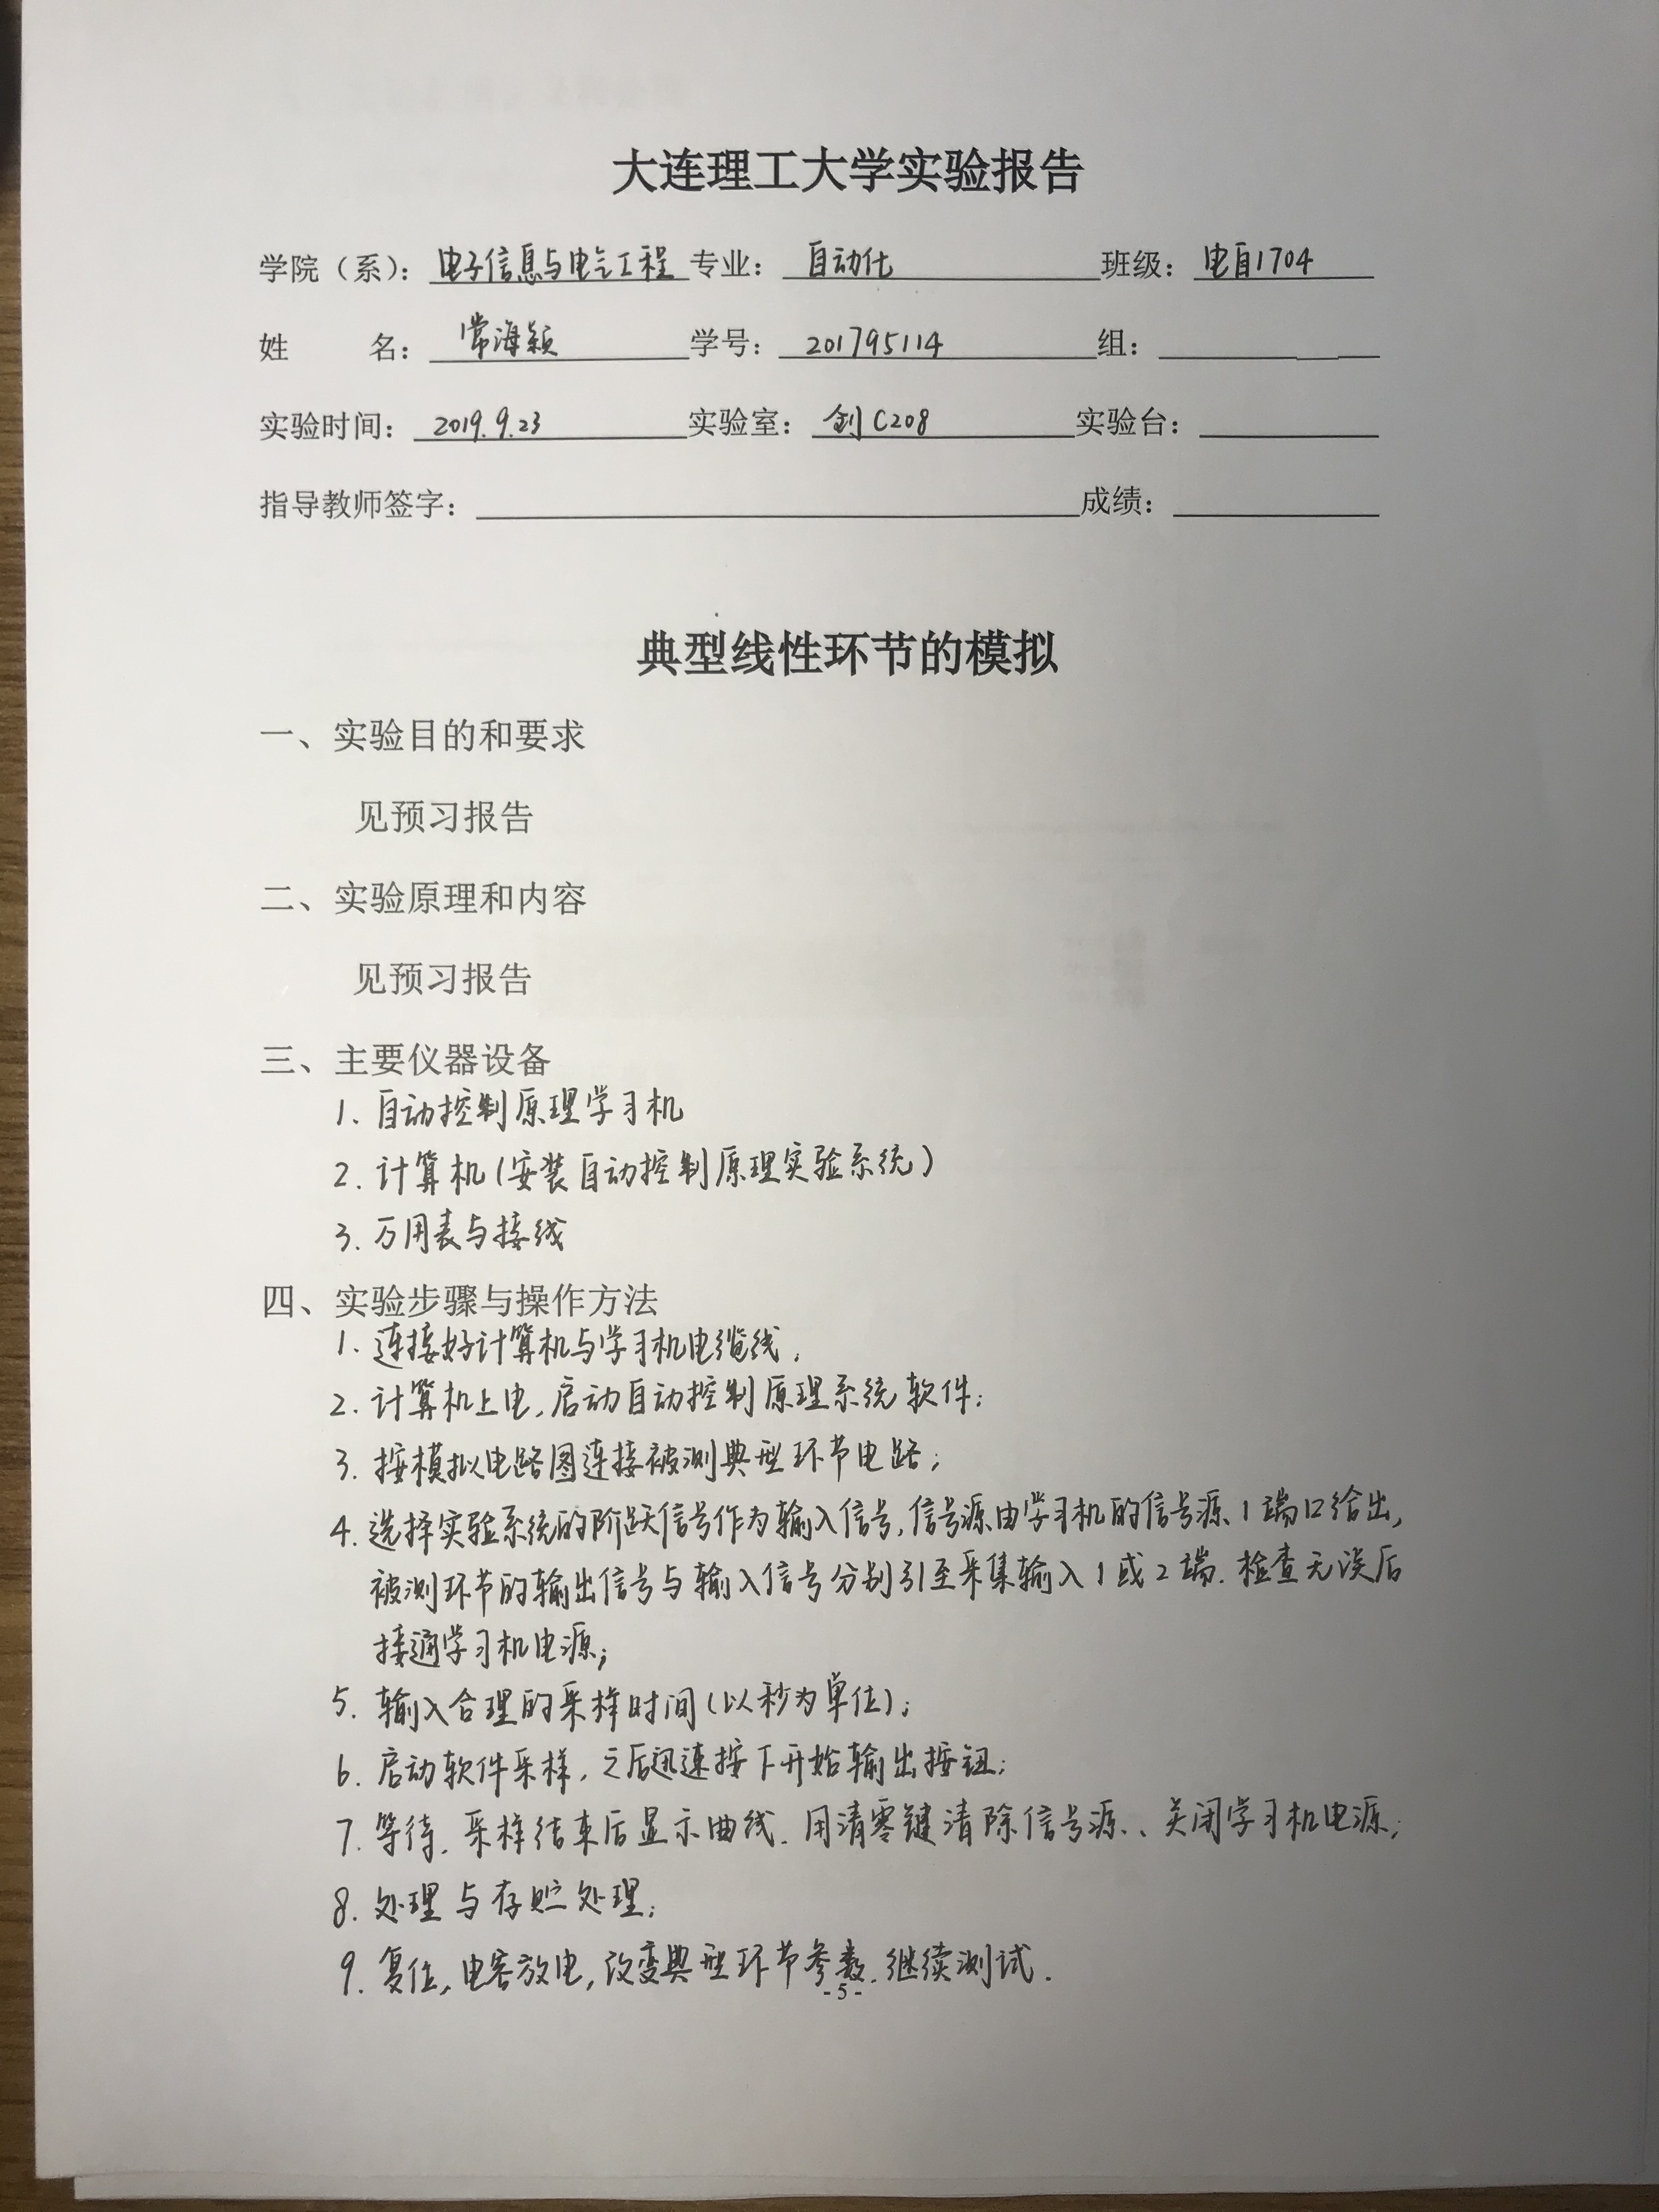 大连理工大学实验报告
学院（系）：电子信息与电气工程 专业：自动化 班级：电自1704
姓 名：常海颖 学号：201795114 组：
实验时间：2019.9.23 实验室：创C208 实验台：
指导教师签字： 成绩：
典型线性环节的模拟
一、实验目的和要求
见预习报告
二、实验原理和内容
见预习报告
三、主要仪器设备
1. 自动控制原理学习机
2. 计算机（安装自动控制原理实验系统）
3. 万用表与接线
四、实验步骤与操作方法
1. 连接好计算机与学习机电缆线；
2. 计算机上电，启动自动控制原理系统软件；
3. 按模拟电路图连接被测典型环节电路；
4. 选择实验系统的阶跃信号作为输入信号，信号源由学习机的信号源1端口给出，
被测环节的输出信号与输入信号分别引至采集输入1或2端．检查无误后
接通学习机电源；
5. 输入合理的采样时间（以秒为单位）；
6. 启动软件采样，之后迅速按下开始输出按钮；
7. 等待．采样结束后显示曲线．用清零键清除信号源、关闭学习机电源；
8. 处理与存贮处理；
9. 复位，电容放电，改变典型环节参数．继续测试．
- 5 -